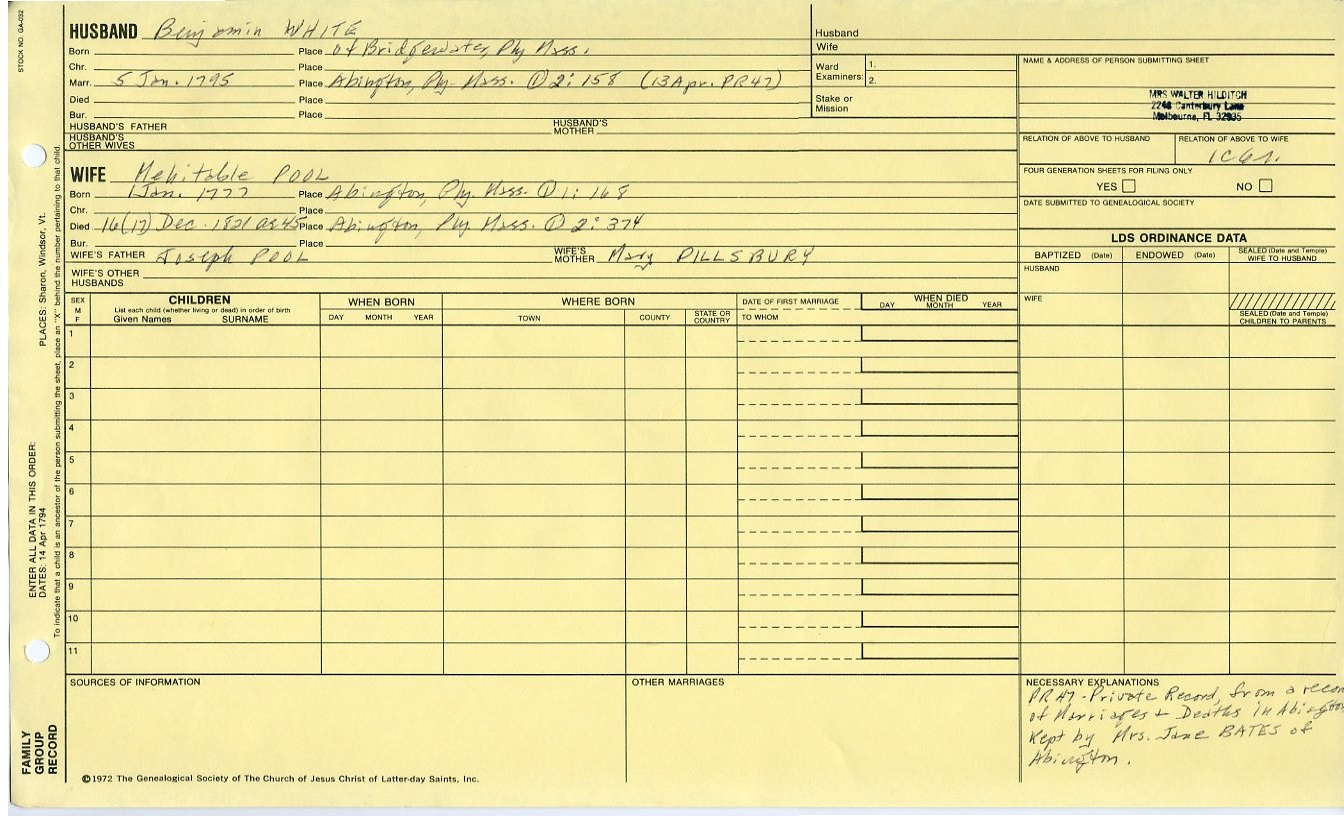 STOCK NO. GA-032
HUSBAND Benjamin WHITE
Born Place of Bridgewater, Ply Mass.
Chr. Place
Marr. 5 Jan. 1795 Place Abington, Ply. Mass. ① 2: 158 (13 Apr. PR47)
Died Place
Bur. Place
HUSBAND'S FATHER HUSBAND'S MOTHER
HUSBAND'S OTHER WIVES
Husband
Wife
Ward Examiners: 1.
2.
Stake or Mission
NAME & ADDRESS OF PERSON SUBMITTING SHEET
MRS WALTER HILDITCH
2248 Canterbury Lane
Melbourne, FL 32935
RELATION OF ABOVE TO HUSBAND RELATION OF ABOVE TO WIFE
FOUR GENERATION SHEETS FOR FILING ONLY
YES NO
DATE SUBMITTED TO GENEALOGICAL SOCIETY
WIFE Mehitable POOL
Born 1 Jan. 1777 Place Abington, Ply. Mass. ① 1: 168
Chr. Place
Died 16(17) Dec. 1821 ae 45 Place Abington, Ply Mass. ① 2: 374
Bur. Place
WIFE'S FATHER Joseph POOL WIFE'S MOTHER Mary PILLSBURY
WIFE'S OTHER HUSBANDS
LDS ORDINANCE DATA
BAPTIZED (Date) ENDOWED (Date) SEALED (Date and Temple) WIFE TO HUSBAND
HUSBAND
WIFE
SEALED (Date and Temple) CHILDREN TO PARENTS
SEX M F
CHILDREN
List each child (whether living or dead) in order of birth
Given Names SURNAME
WHEN BORN
DAY MONTH YEAR
WHERE BORN
TOWN COUNTY STATE OR COUNTRY
DATE OF FIRST MARRIAGE
TO WHOM
WHEN DIED
DAY MONTH YEAR
1
2
3
4
5
6
7
8
9
10
11
SOURCES OF INFORMATION
OTHER MARRIAGES
NECESSARY EXPLANATIONS
PR 47 - Private Record, from a recor
of Marriages + Deaths in Abington
Kept by Mrs. Jane BATES of
Abington.
©1972 The Genealogical Society of The Church of Jesus Christ of Latter-day Saints, Inc.
FAMILY GROUP RECORD
ENTER ALL DATA IN THIS ORDER:
DATES: 14 Apr 1794 PLACES: Sharon, Windsor, Vt.
To indicate that a child is an ancestor of the person submitting the sheet, place an "X" behind the number pertaining to that child.